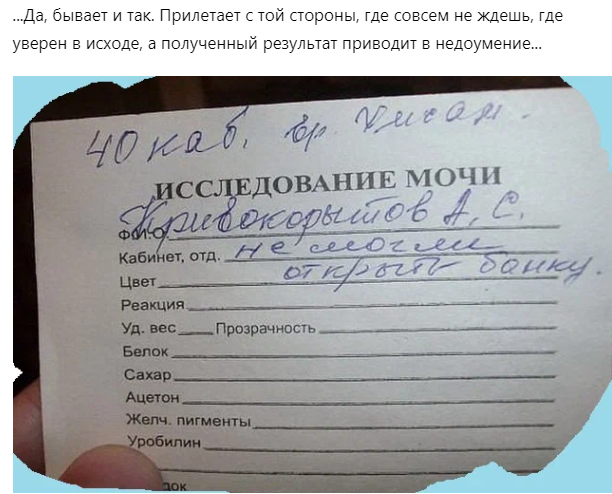 ...Да, бывает и так. Прилетает с той стороны, где совсем не ждешь, где
уверен в исходе, а полученный результат приводит в недоумение...
40 каб. вр.
ИССЛЕДОВАНИЕ МОЧИ
Ф.И.О. Кривокорытов А. С.
Кабинет, отд. не могли
Цвет открыть банку.
Реакция
Уд. вес Прозрачность
Белок
Сахар
Ацетон
Желч. пигменты
Уробилин